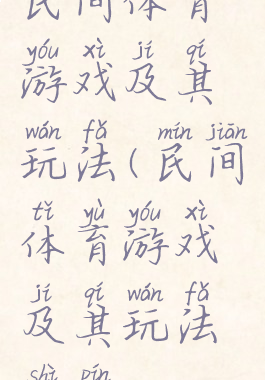 民间体育
yóu xì jí qí
游戏及其
wán fǎ mín jiān
玩法(民间
tǐ yù yóu xì
体育游戏
jí qí wán fǎ
及其玩法
shì pín